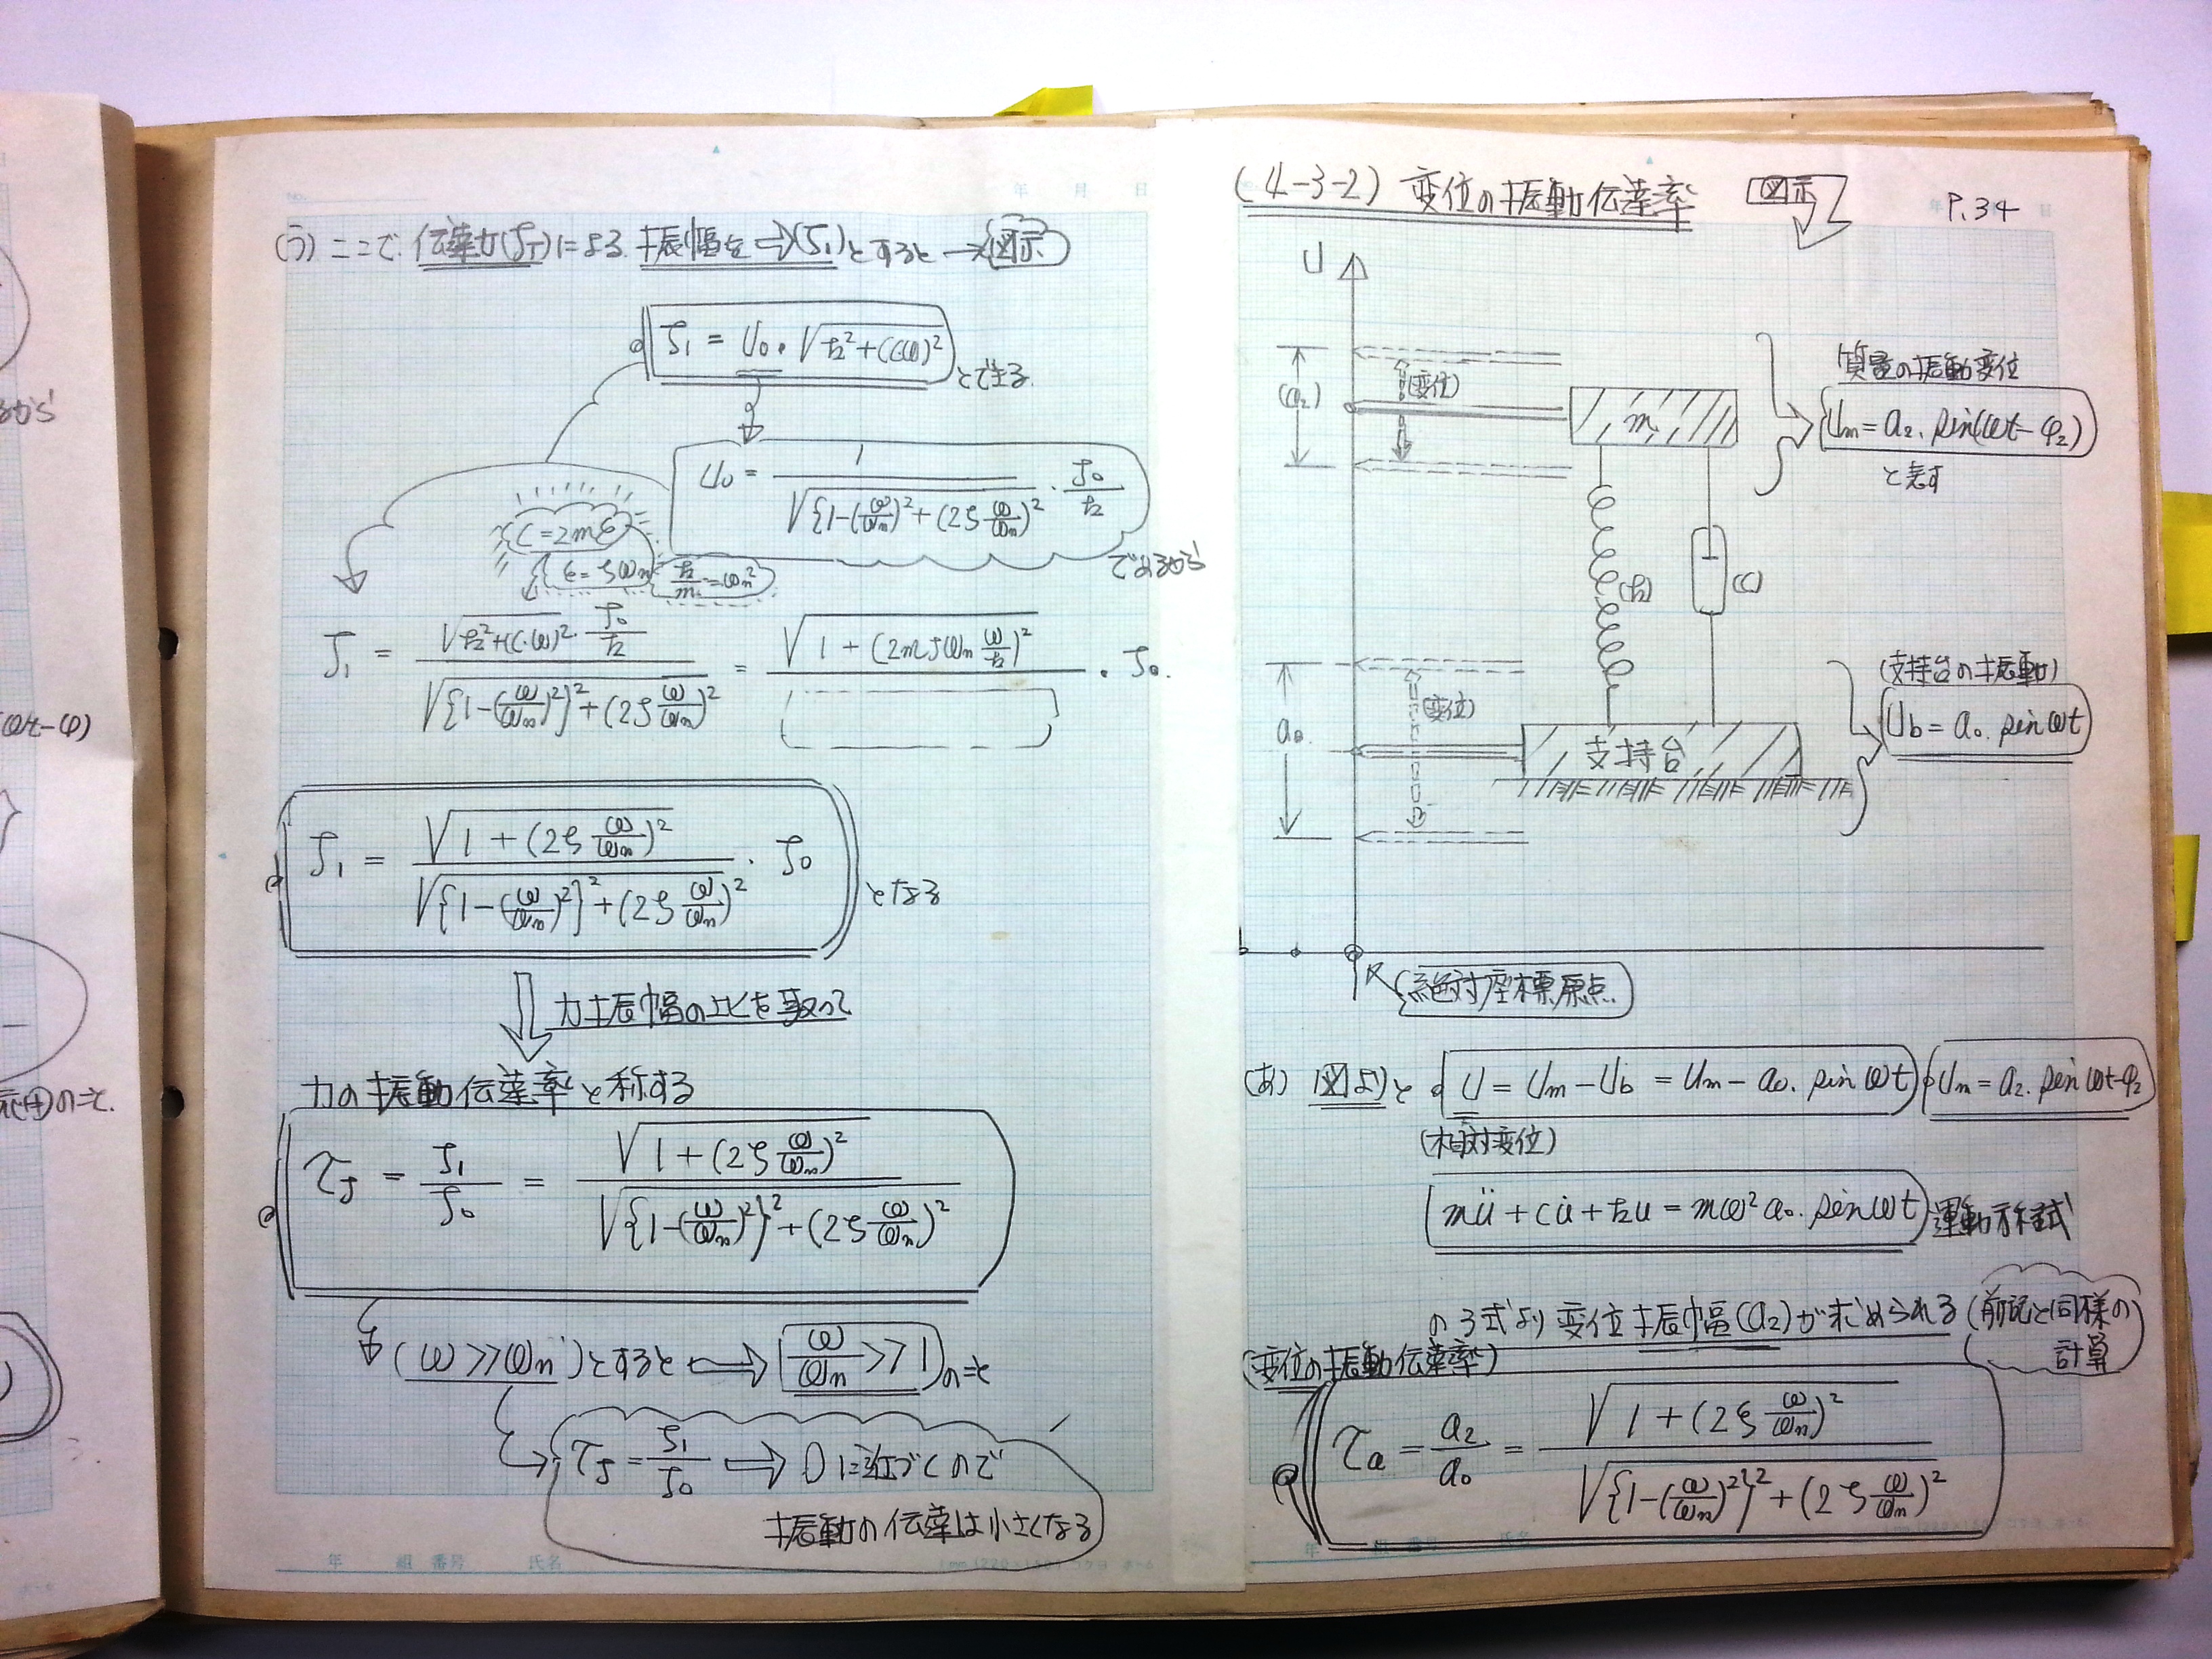 (う) ここで 伝達力(f_T)による 振幅を ⇒(f₁)とすると → 図示
f₁ = U₀・√k²+(cω)² とできる
U₀ = 1/√{1-(ω/ωn)²+(2ζ ω/ωn)² ・ f₀/k
であるから
C=2mε
ε=ζωn
k/m=ωn²
f₁ = √k²+(c・ω)²・f₀/k / √{1-(ω/ωn)²}²+(2ζ ω/ωn)² = √1+(2mζωn ω/k)² / [ ] ・ f₀
f₁ = √1+(2ζ ω/ωn)² / √{1-(ω/ωn)²}²+(2ζ ω/ωn)² ・ f₀ となる
力振幅の比を取って
力の振動伝達率と称する
τf = f₁/f₀ = √1+(2ζ ω/ωn)² / √{1-(ω/ωn)²}²+(2ζ ω/ωn)²
(ω≫ωn)とすると ⇒ ω/ωn ≫ 1 のこと
τf = f₁/f₀ ⇒ 0に近づくので
振動の伝達は小さくなる
年 組 番号 氏名
(4-3-2) 変位の振動伝達率 図示
P.34
U
(a₂)
(変位)
m
質量の振動変位
Um = a₂. sin(ωt-φ₂)
と表す
(k)
(C)
a₀
(変位)
支持台
(支持台の振動)
Ub = a₀. sin ωt
絶対座標原点
(あ) 図よりと U = Um - Ub = Um - a₀. sin ωt Um = a₂. sin ωt-φ₂
(相対変位)
mü + cu̇ + ku = mω²a₀. sin ωt 運動方程式
の3式より 変位振幅(a₂)が求められる (前記と同様の
計算)
(変位の振動伝達率)
τa = a₂/a₀ = √1+(2ζ ω/ωn)² / √{1-(ω/ωn)²}²+(2ζ ω/ωn)²